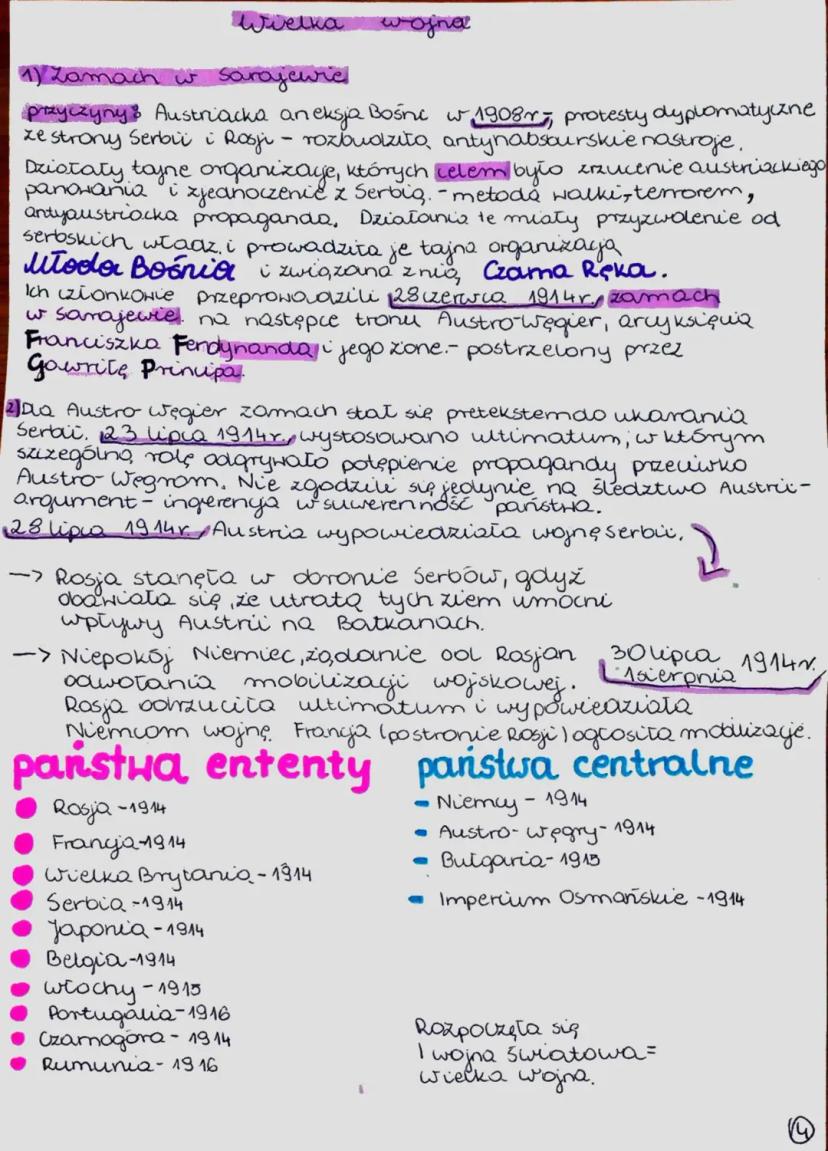 Wielka wojna
1) Zamach w Sarajewie
przyczyny: Austriacka aneksja Bośni w 1908r-, protesty dyplomatyczne
ze strony Serbii i Rosji - rozbudziło antyhabsburskie nastroje.
Działały tajne organizacje, których celem było zrzucenie austriackiego
panowania i zjednoczenie z Serbią. - metodą walki - terrorem,
antyaustriacka propaganda. Działania te miały przyzwolenie od
serbskich władz i prowadziła je tajna organizacja
Młoda Bośnia i związana z nią Czarna Ręka.
Ich członkowie przeprowadzili 28 czerwca 1914r. zamach
w Sarajewie na następce tronu Austro-Węgier, arcyksięcia
Franciszka Ferdynanda i jego żone. - postrzelony przez
Gawriłę Principa.
2) Dla Austro-Węgier zamach stał się pretekstem do ukarania
Serbii. 23 lipca 1914r. wystosowano ultimatum, w którym
szczególną rolę odgrywało potępienie propagandy przeciwko
Austro-Węgrom. Nie zgodzili się jedynie na śledztwo Austrii -
argument - ingerencja w suwerenność państwa.
28 lipca 1914r. Austria wypowiedziała wojnę Serbii.
-> Rosja stanęła w obronie Serbów, gdyż
obawiała się, że utrata tych ziem umocni
wpływy Austrii na Bałkanach.
-> Niepokój Niemiec, żądanie od Rosjan
odwołania mobilizacji wojskowej.
30 lipca
1 sierpnia 1914r.
Rosja odrzuciła ultimatum i wypowiedziała
Niemcom wojnę. Francja (po stronie Rosji) ogłosiła mobilizacje.
państwa ententy
Rosja - 1914
Francja - 1914
Wielka Brytania - 1914
Serbia - 1914
Japonia - 1914
Belgia - 1914
Włochy - 1915
Portugalia - 1916
Czarnogóra - 1914
Rumunia - 1916
państwa centralne
- Niemcy - 1914
- Austro-Węgry - 1914
- Bułgaria - 1915
- Imperium Osmańskie - 1914
Rozpoczęła się
I wojna światowa =
wielka wojna.
4